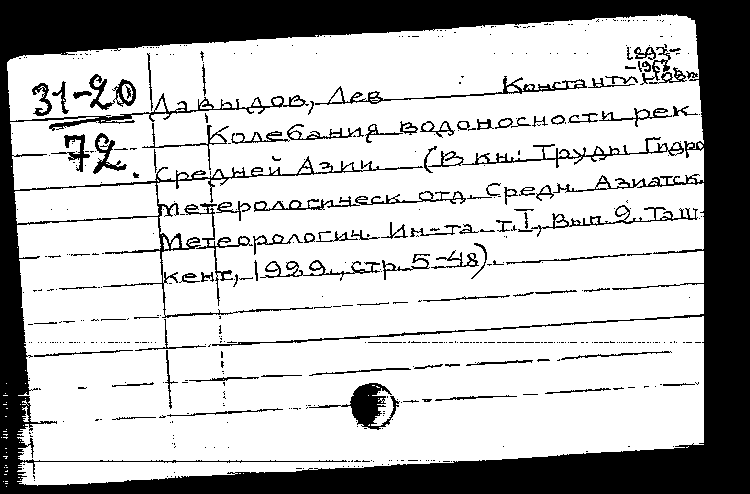 1893-
-1963
31-20
72.
Давыдов, Лев Константинов
Колебания водоносности рек
Средней Азии. (В кн.: Труды Гидро
Метерологическ отд. Средн. Азиатск.
Метеорологич. Ин-та. т. I, вып 2. Таш-
кент, 1929., стр. 5-48).